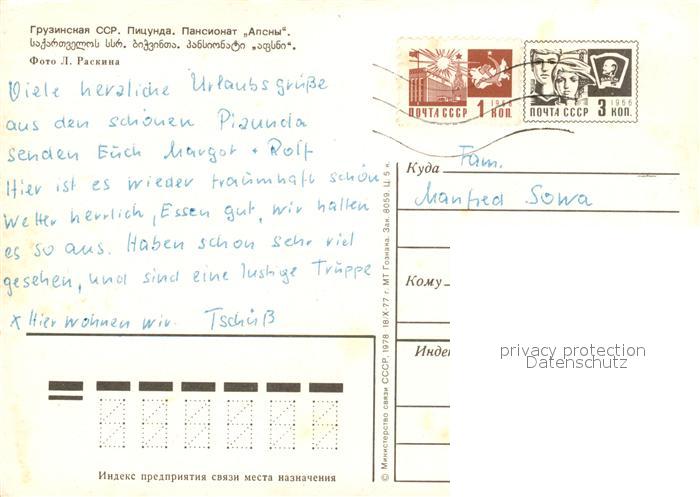 Грузинская ССР. Пицунда. Пансионат „Апсны".
საქართველოს სსრ. ბიჭვინთა. პანსიონატი „აფსნი".
Фото Л. Раскина
Viele herzliche Urlaubsgrüße
aus den schönen Pizunda
senden Euch Margot + Rolf
Hier ist es wieder traumhaft schön
Wetter herrlich, Essen gut, wir halten
es so aus. Haben schon sehr viel
gesehen, und sind eine lustige Truppe
x Hier wohnen wir. Tschüß
Индекс предприятия связи места назначения
© Министерство связи СССР, 1978 18/X-77 г. МТ Гознака. Зак. 8059. Ц. 5 к.
1966
ПОЧТА СССР 1 КОП.
1966
ПОЧТА СССР 3 КОП.
ВЛКСМ
Куда Fam.
Manfred Sowa
Кому
Индек
privacy protection
Datenschutz